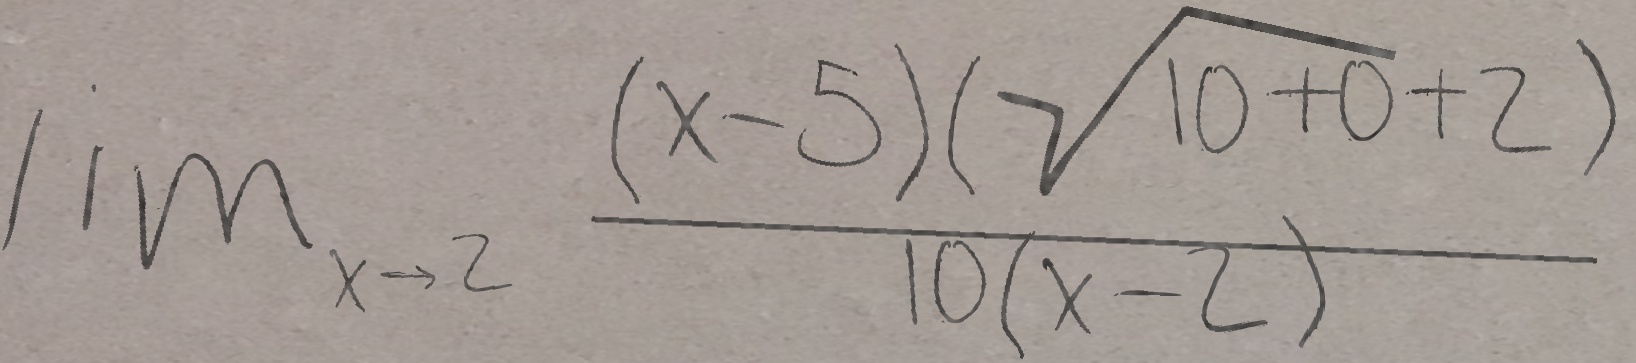 lim_{x→2} \frac{(x-5)(\sqrt{10+0}+2)}{10(x-2)}